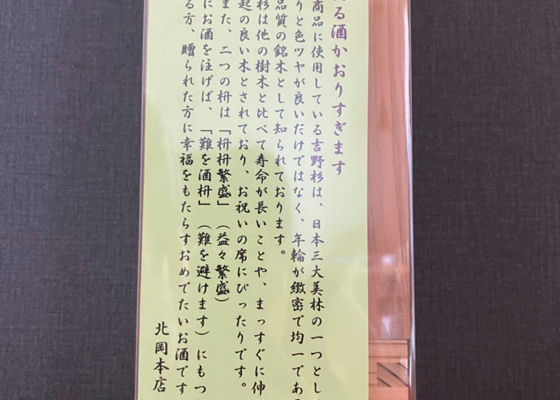 る酒かおりすぎます
商品に使用している吉野杉は、日本三大美林の一つとし
りと色ツヤが良いだけではなく、年輪が緻密で均一である
品質の銘木として知られております。
杉は他の樹木と比べて寿命が長いことや、まっすぐに伸
起の良い木とされており、お祝いの席にぴったりです。
また、二つの枡は「枡枡繁盛」（益々繁盛）
にお酒を注げば、「難を酒枡」（難を避けます）にもつ
る方、贈られた方に幸福をもたらすおめでたいお酒です
北岡本店